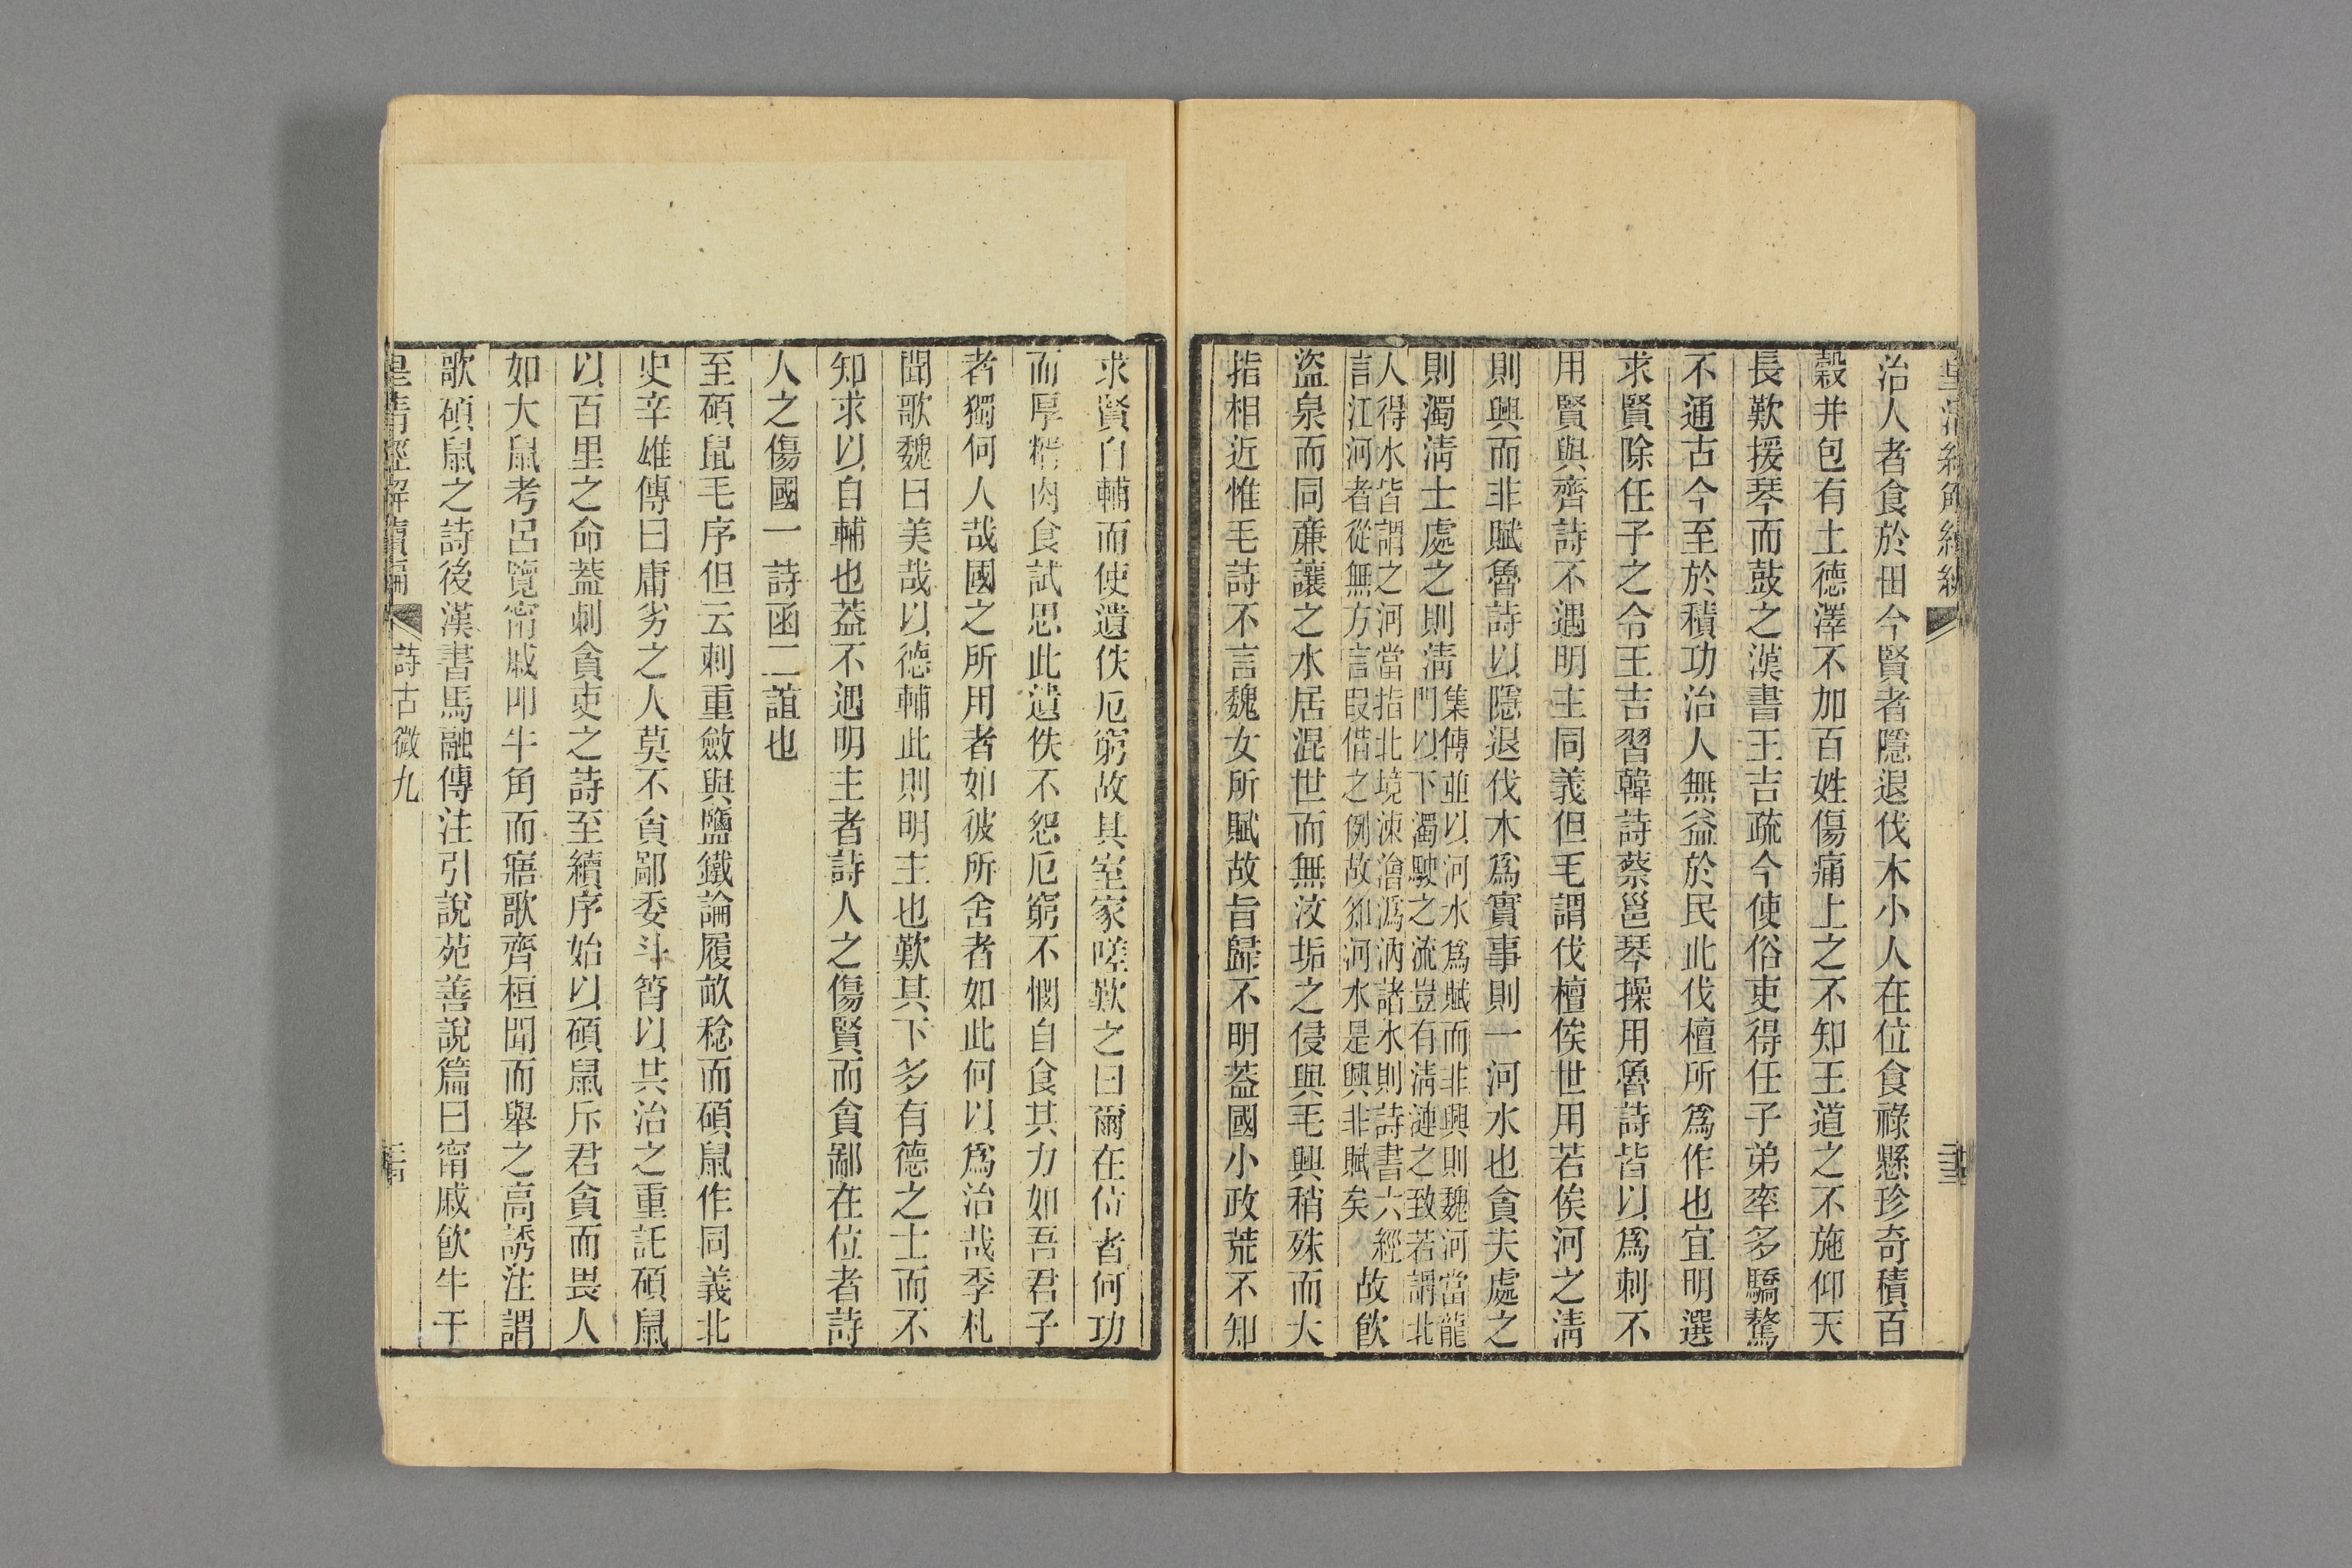 治人者食於田今賢者隱退伐木小人在位食祿懸珍奇積百
穀并包有土德澤不加百姓傷痛上之不知王道之不施仰天
長歎援琴而鼓之漢書王吉疏今使俗吏得任子弟率多驕驁
不通古今至於積功治人無益於民此伐檀所爲作也宜明選
求賢除任子之令王吉習韓詩蔡邕琴操用魯詩皆以爲刺不
用賢與齊詩不遇明主同義但毛謂伐檀俟世用若俟河之淸
則興而非賦魯詩以隱退伐木爲實事則一河水也貪夫處之
則濁淸士處之則淸
集傳並以河水爲賦而非興則魏河當龍
門以下濁駛之流豈有淸漣之致若謂北
人得水皆謂之河當指北境涑澮溈汭諸水則詩書六經
言江河者從無方言叚借之例故知河水是興非賦矣
故飮
盜泉而同亷讓之水居混世而無汶垢之侵與毛興稍殊而大
指相近惟毛詩不言魏女所賦故旨歸不明葢國小政荒不知
皇淸經解續編
求賢自輔而使遺佚厄窮故其室家嗟歎之曰爾在位者何功
而厚糈肉食試思此遺佚不怨厄窮不憫自食其力如吾君子
者獨何人哉國之所用者如彼所舍者如此何以爲治哉季札
聞歌魏曰美哉以德輔此則明主也歎其下多有德之士而不
知求以自輔也葢不遇明主者詩人之傷賢而貪鄙在位者詩
人之傷國一詩函二誼也
至碩鼠毛序但云刺重斂與鹽鐵論履畝稅而碩鼠作同義北
史辛雄傳曰庸劣之人莫不貪鄙委斗筲以共治之重託碩鼠
以百里之命葢刺貪吏之詩至續序始以碩鼠斥君貪而畏人
如大鼠考呂覽甯戚叩牛角而㾛歌齊桓聞而舉之高誘注謂
歌碩鼠之詩後漢書馬融傳注引說苑善說篇曰甯戚飮牛于
皇淸經解續編
詩古微九